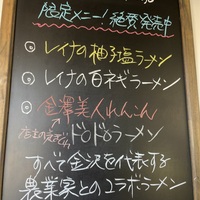 限定メニュー! 絶賛発売中
◎ レイナの柚子塩ラーメン
◎ レイナの百ネギラーメン
◎ 金澤美人れんこん
ドロドロラーメン
すべて金沢を代表する
農業家とのコラボラーメン